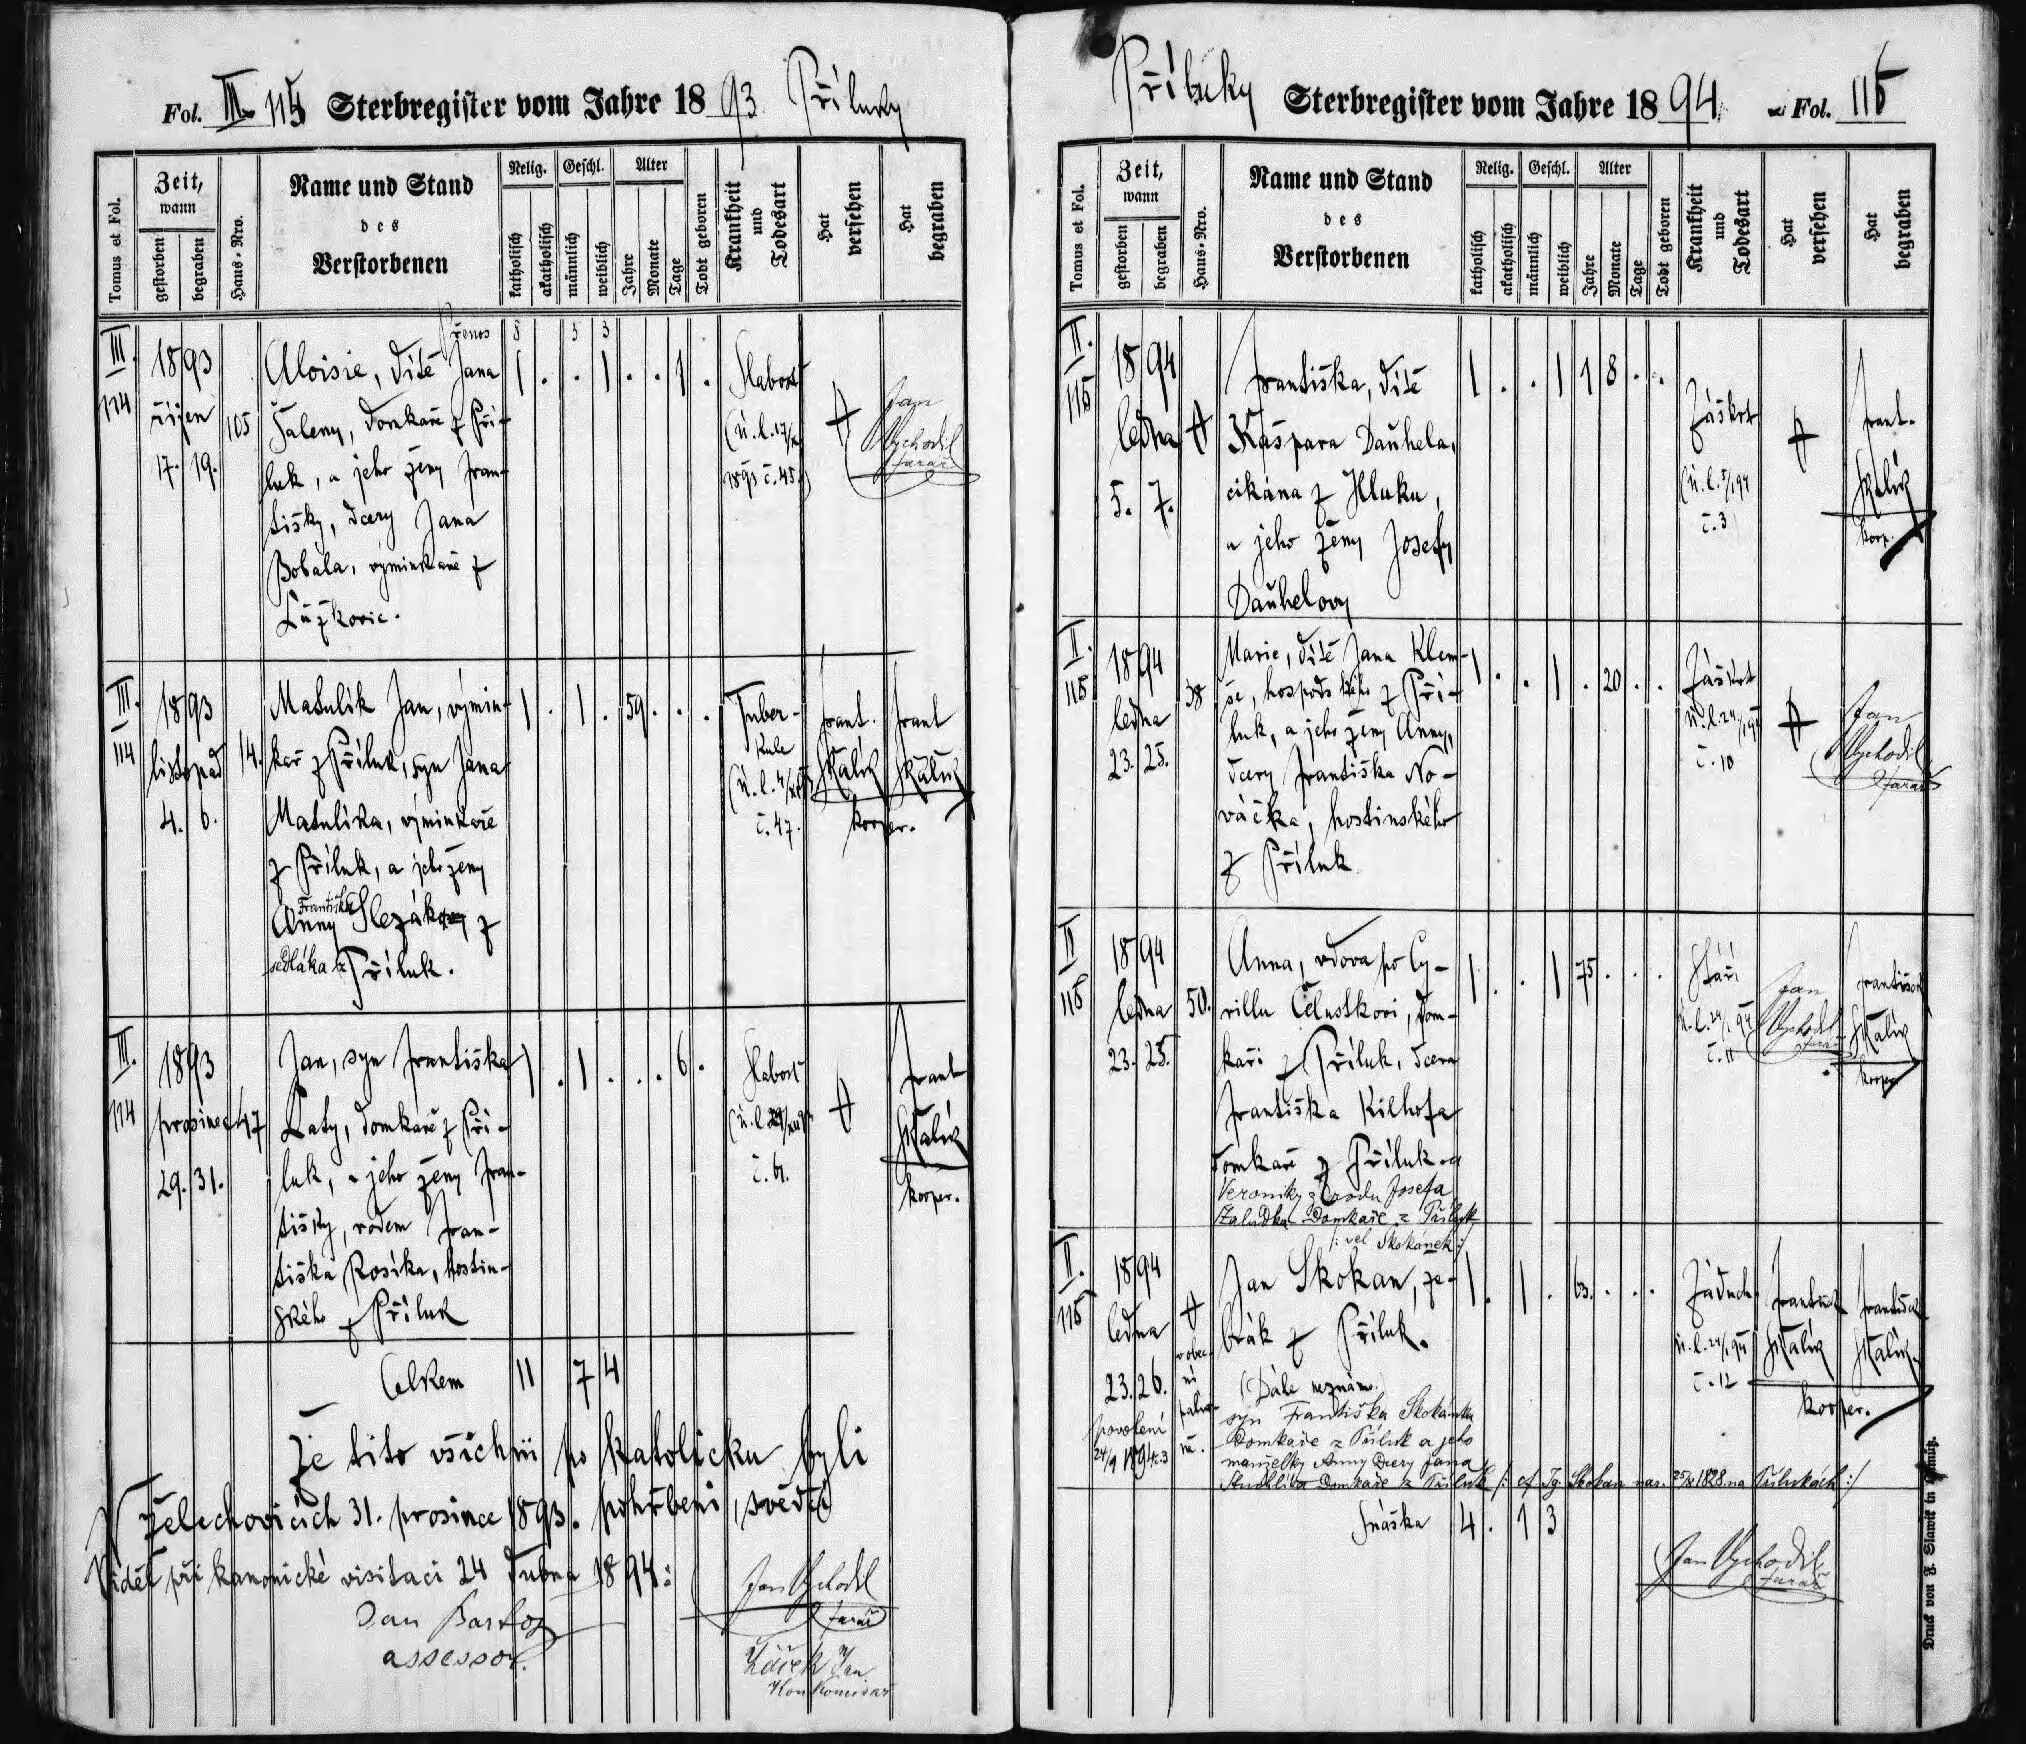 Fol. III. 115 Sterbregister vom Jahre 1893 Příluky
Tomus et Fol.
Zeit, wann
gestorben
begraben
Haus-Nro.
Name und Stand
des
Verstorbenen
Relig.
katholisch
akatholisch
Geschl.
männlich
weiblich
Alter
Jahre
Monate
Tage
Todt geboren
Krankheit und Todesart
Hat versehen
Hat begraben
Přenos 8 5 3
III.
114
1893
říjen
17. 19.
105
Aloisie, dítě Jana
Šaleny, domkaře z Pří-
luk, a jeho ženy Fran-
tišky, dcery Jana
Bobala, výminkaře z
Lůžkovic.
1 . . 1 . . 1 .
Slabost
(ú. l. 17/x
1893 č. 45.)
Jan
Vychodil
farář
III.
114
1893
listopad
4. 6.
14.
Matulík Jan, výmin-
kář z Příluk, syn Jana
Matulíka, výminkáře
z Příluk, a jeho ženy
Františka
Anny Slezákovy z
sedláka z Příluk.
1 . 1 . 59 . . .
Tuber-
kule
č. 47.
Frant.
Skalík
Frant
Skalík
kooper.
III.
114
1893
prosinec
29. 31.
47
Jan, syn Františka
Laty, domkaře z Pří-
luk, a jeho ženy Fran-
tišky, rodem Fran-
tiška Rosíka, hostin-
ského z Příluk
1 . 1 . . . 6 .
Slabost
č. 61.
Frant
Skalík
kooper.
Celkem 11 7 4
Že tito všichni po katolicku byli
V Želechovicích 31. prosince 1893. pohřbeni, svědčí
Viděl při kanonické visitaci 24 dubna 1894:
Jan Vychodil
farář
Jan Bartoš
assessor.
Žáček Jan
Konkomisař
Příluky Sterbregister vom Jahre 1894 Fol. 115
Tomus et Fol.
Zeit, wann
gestorben
begraben
Haus-Nro.
Name und Stand
des
Verstorbenen
Relig.
katholisch
akatholisch
Geschl.
männlich
weiblich
Alter
Jahre
Monate
Tage
Todt geboren
Krankheit und Todesart
Hat versehen
Hat begraben
II.
115
1894
ledna
5. 7.
Františka, dítě
Kašpara Daňhela,
cikána z Hluku,
a jeho ženy Josefy
Daňhelovy
1 . . 1 1 8 . .
Záškrt
(ú. l. 5/1 94
č. 3)
Frant.
Skalík
koop.
II.
115
1894
ledna
23. 25.
38
Marie, dítě Jana Klem-
še, hospodského z Pří-
luk, a jeho ženy Anny,
dcery Františka No-
váčka, hostinského
z Příluk
1 . . 1 . 20 . .
Záškrt
ú. l. 24/1 94
č. 10
Jan
Vychodil
farář
II
115
1894
ledna
23. 25.
50.
Anna, vdova po Cy-
rillu Čelustkovi, dom-
kaři z Příluk, dcera
Františka Kilhofa
domkaře z Příluk a
Veroniky z rodu Josefa
Žaludka domkaře z Příluk
1 . . 1 75 . . .
Stáří
ú. l. 24/1 94
č. 11
Jan
Vychodil
farář
František
Skalík
kooper
II.
115
1894
ledna
23. 26.
povolení
24/1 1894 č. 3
v obec-
ní
pastou-
/: vel Skokánek :/
Jan Skokan, že-
brák z Příluk.
(Dále neznámo.)
syn Františka Skokánka
domkaře z Příluk a jeho
manželky Anny dcery Jana
domkaře z Příluk /: cf Ig. Skokan nar. 25/ 1828 na Přílukách :/
1 . 1 . 63. . . .
Záduch
ú. l. 24/1 94
č. 12
František
Skalík
František
Skalík
kooper.
Snáška 4 . 1 3
Jan Vychodil
farář
Druck von F. Slawik in Olmütz.